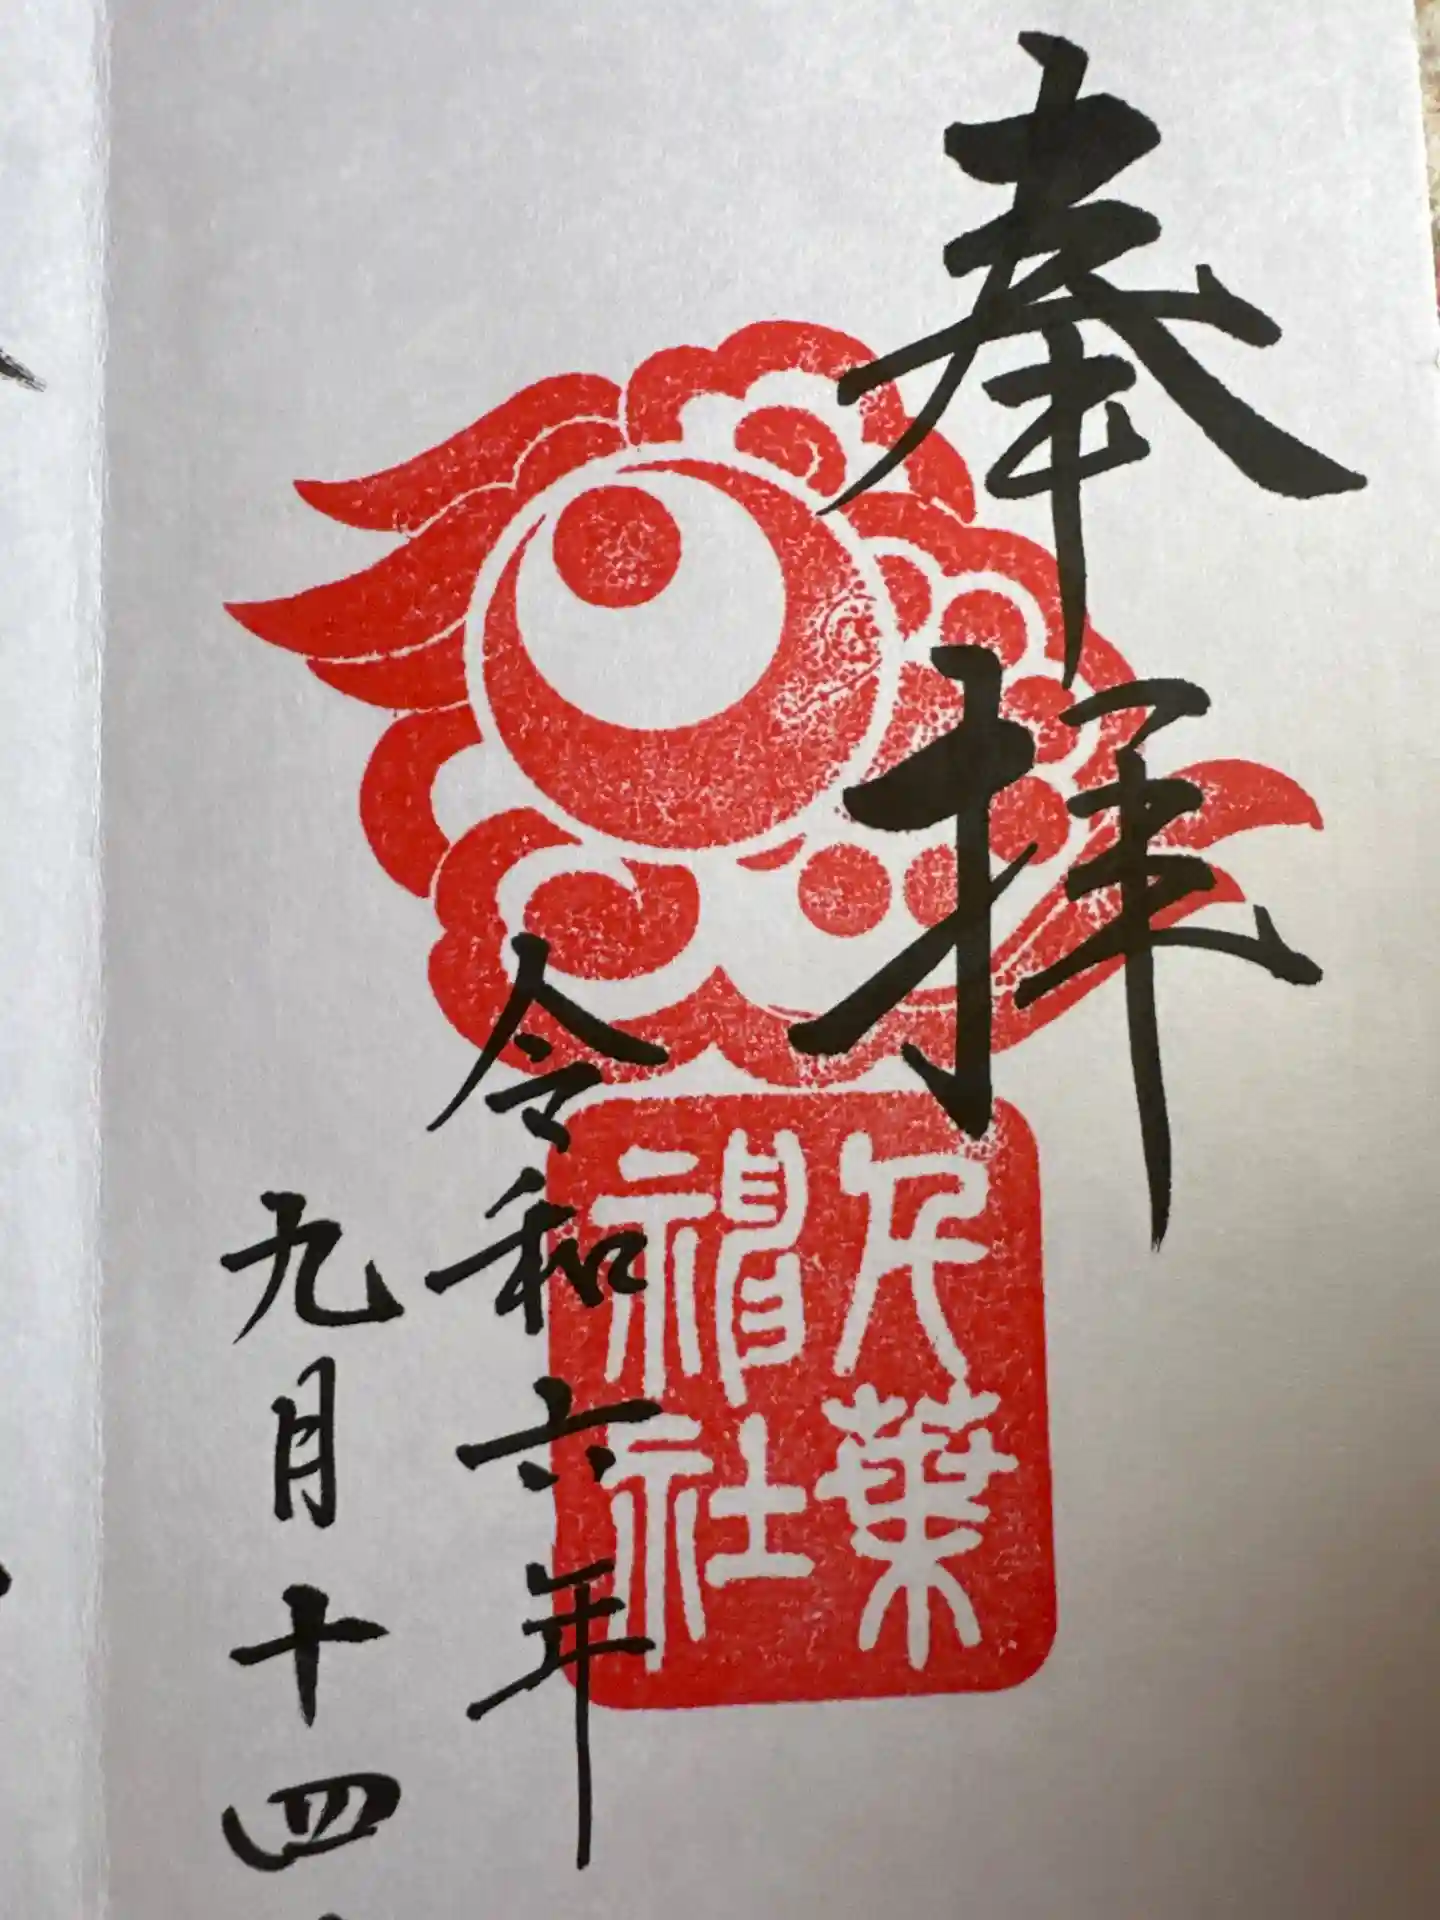 奉拝
千葉
神社
令和六年
九月十四